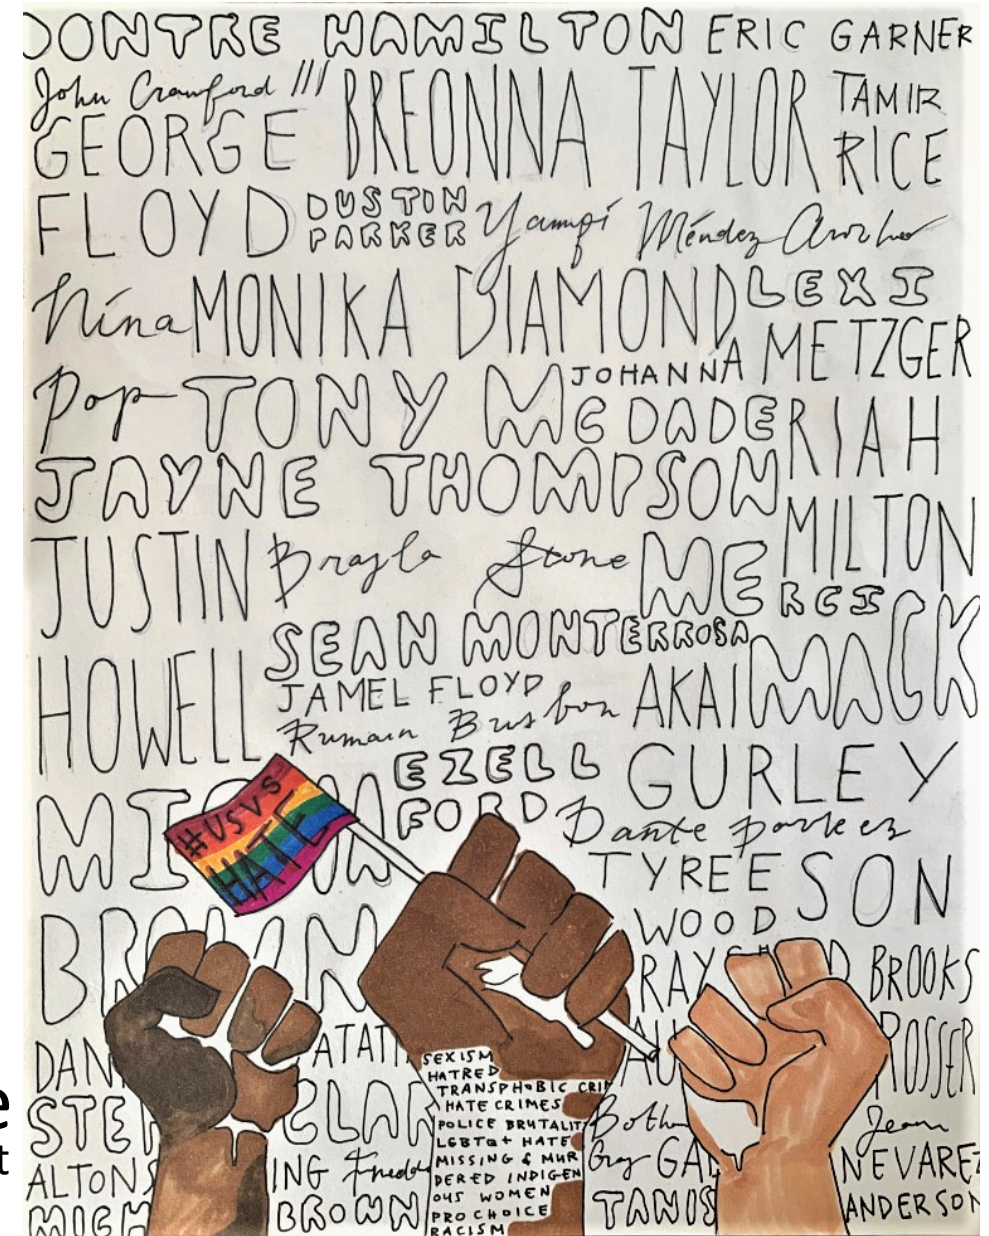 DONTRE HAMILTON ERIC GARNER
John Crawford III
GEORGE FLOYD
BREONNA TAYLOR
TAMIR RICE
DUSTIN PARKER
Yampi Méndez Arocho
Nina Pop
MONIKA DIAMOND
LEXI
JOHANNA METZGER
TONY MCDADE
RIAH MILTON
JAYNE THOMPSON
JUSTIN HOWELL
Brayla Stone
MERCI MACK
SEAN MONTERROSA
JAMEL FLOYD
Rumain Brisbon
AKAI GURLEY
EZELL FORD
#USVS HATE
Dante Parker
TYREE WOODSON
RAY BROOKS
ROSSER
DAN
STE CLAR
Botham Jean
ALTON
ING Freddie Gray
NEVAREZ
MICH BROWN
TANIS ANDERSON
SEXISM
HATRED
TRANSPHOBIC CRI
HATE CRIMES
POLICE BRUTALITY
LGBTQ+ HATE
MISSING & MUR
DERED INDIGEN
OUS WOMEN
PRO CHOICE
RACISM